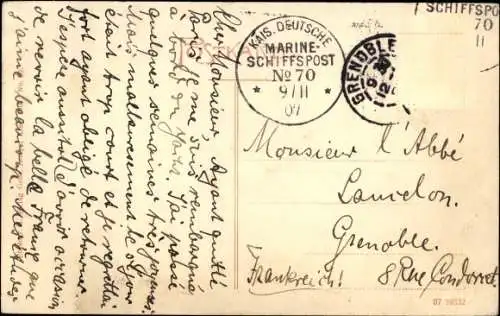 Cher Monsieur. Ayant quitté
Paris je me suis rembarqué
à bord du J'ai passé
quelques semaines très joyeuses
Mais malheureusement le séjour
était trop court et je regrettai
fort ayant obligé de retourner
J'espère aussitôt d'avoir occasion
de revoir la belle France que
j'aime beaucoup.
POSTKARTE
KAIS. DEUTSCHE
MARINE-
SCHIFFSPOST
No 70
* 9/11 *
07
GRENOBLE
12
SCHIFFSPO
70
11
Monsieur l'Abbé
Grenoble.
Frankreich! 8 Rue Condorcet
07 19532